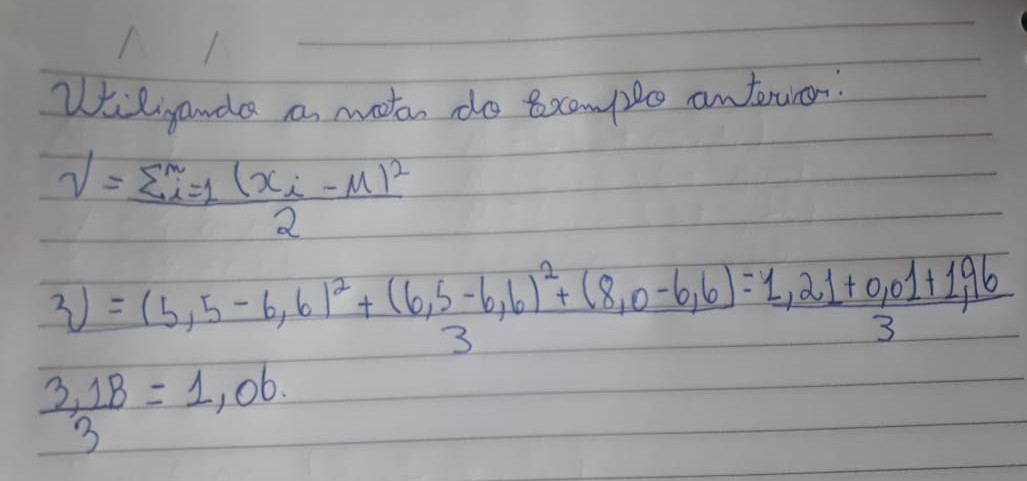 Utilizando as notas do Exemplo anterior:
V = Σⁿi=1 (xi - M)²
2
V = (5,5 - 6,6)² + (6,5 - 6,6)² + (8,0 - 6,6) = 1,21 + 0,01 + 1,96
3 3
3,18 = 1,06.
3